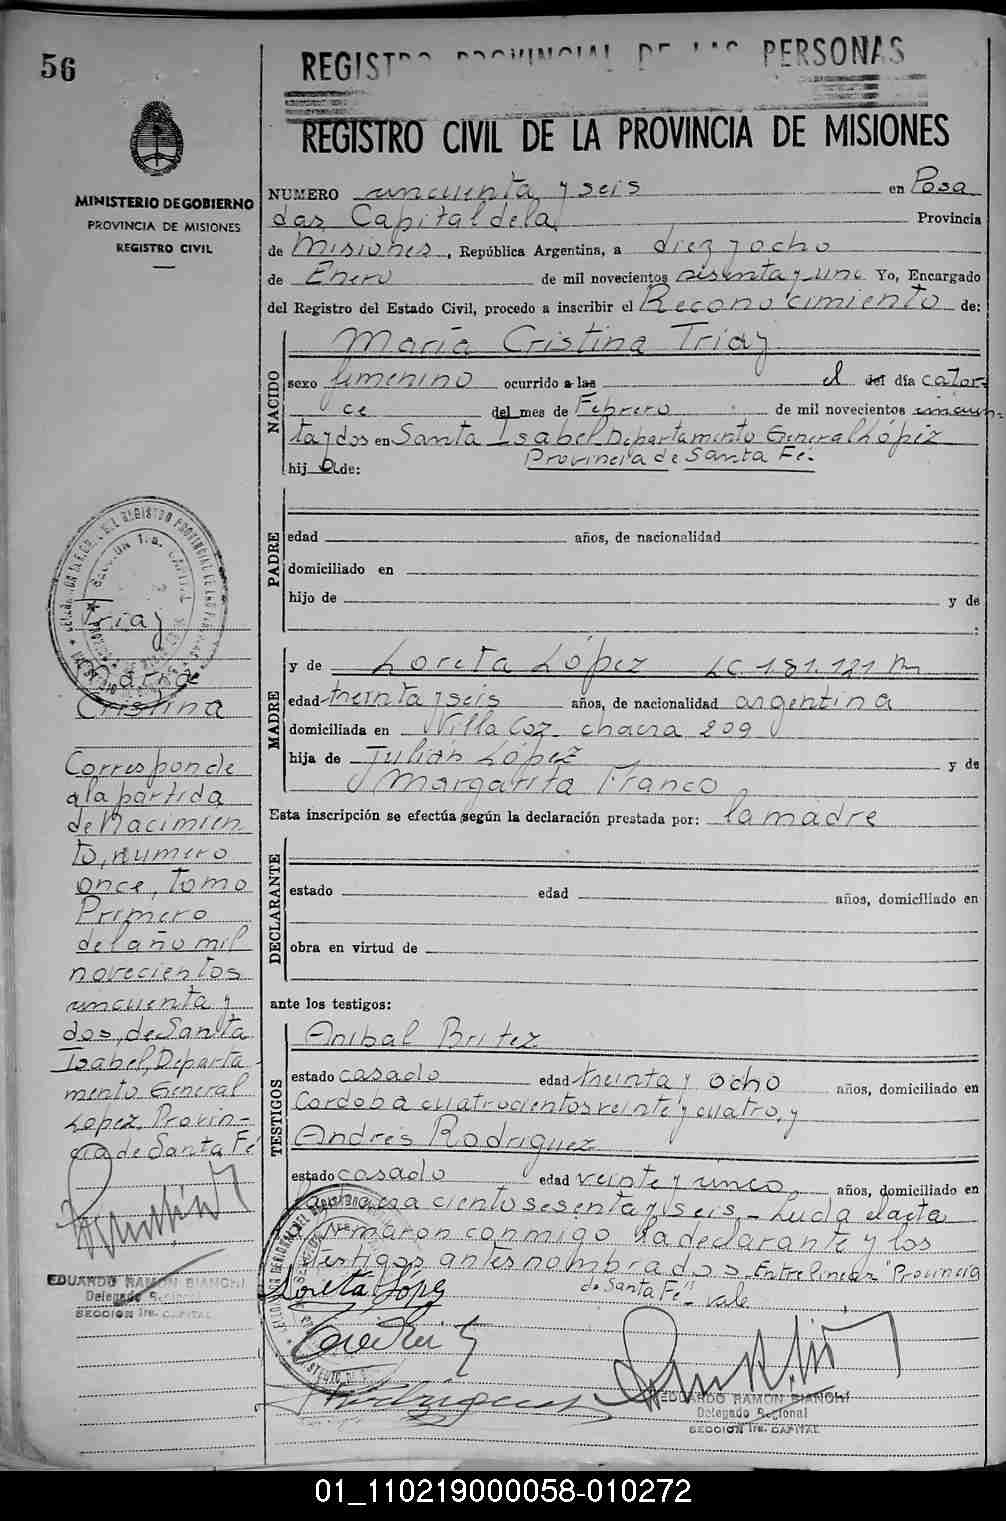 56
REGISTRO PROVINCIAL DE LAS PERSONAS
REGISTRO CIVIL DE LA PROVINCIA DE MISIONES
MINISTERIO DE GOBIERNO
PROVINCIA DE MISIONES
REGISTRO CIVIL
NUMERO cincuenta y seis en Posa
das, Capital de la Provincia
de Misiones, República Argentina, a diez y ocho
de Enero de mil novecientos sesenta y uno Yo, Encargado
del Registro del Estado Civil, procedo a inscribir el Reconocimiento de:
NACIDO
María Cristina Triay
sexo femenino ocurrido a las el del día cator
ce del mes de Febrero de mil novecientos cincuen-
ta y dos en Santa Isabel Departamento General López
Provincia de Santa Fé.
hija de:
PADRE
edad años, de nacionalidad
domiciliado en
hijo de y de
:
MADRE
y de Loreta López LC 181.121
edad treinta y seis años, de nacionalidad argentina
domiciliada en Villa Coz chacra 209
hija de Julián López y de
Margarita Franco
Esta inscripción se efectúa según la declaración prestada por: la madre
DECLARANTE
estado edad años, domiciliado en
obra en virtud de
ante los testigos:
TESTIGOS
Anibal Britez
estado casado edad treinta y ocho años, domiciliado en
Cordoba cuatrocientos veinte y cuatro, y
Andrés Rodriguez
estado casado edad veinte y cinco años, domiciliado en
ciento sesenta y seis.- Leida el acta
firmaron conmigo la declarante y los
testigos antes nombrados. Entrelineas "Provincia
de Santa Fé" vale
Loreta López
EDUARDO RAMON BIANCHI
Delegado Regional
SECCION 1ra. CAPITAL
Triay
María
Cristina
Corresponde
a la partida
de Nacimien
to, numero
once, Tomo
Primero
del año mil
novecientos
cincuenta y
dos, de Santa
Isabel, Departa
mento General
Lopez, Provin-
cia de Santa Fé
EDUARDO RAMON BIANCHI
Delegado Regional
SECCION 1ra. CAPITAL
01_110219000058-010272